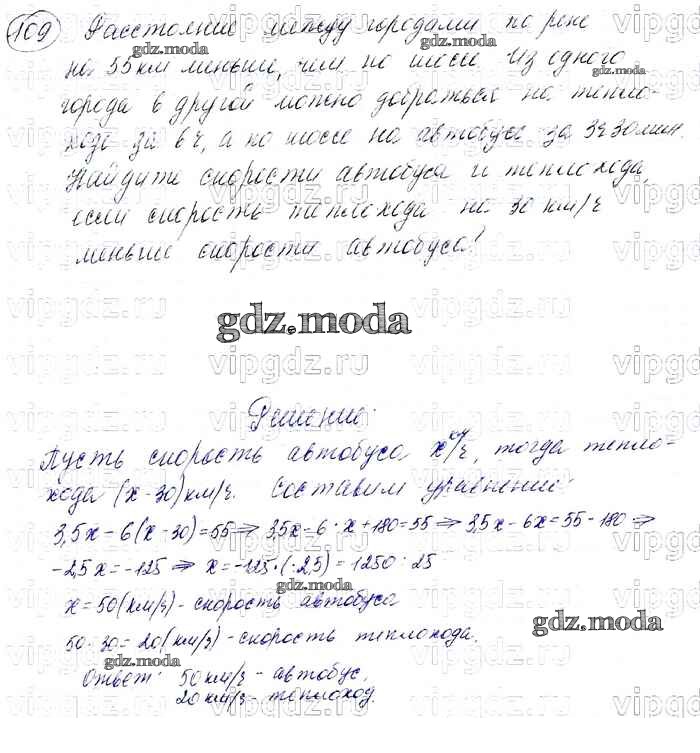 109 Расстояние между городами по реке
на 55 км меньше, чем по шоссе. Из одного
города в другой можно добраться на тепло-
ходе за 6ч, а по шоссе на автобусе за 3ч30мин.
Найдите скорости автобуса и теплохода,
если скорость теплохода на 30 км/ч
меньше скорости автобуса?
gdz.moda
Решение:
Пусть скорость автобуса x км/ч, тогда тепло-
хода (x-30)км/ч. Составим уравнение:
3,5x-6(x-30)=55⇒ 3,5x-6·x+180=55⇒ 3,5x-6x=55-180⇒
-2,5x=-125 ⇒ x=-125:(-2,5)=1250:25
x=50(км/ч)-скорость автобуса
50-30=20(км/ч)-скорость теплохода.
Ответ: 50км/ч-автобус,
20км/ч-теплоход.